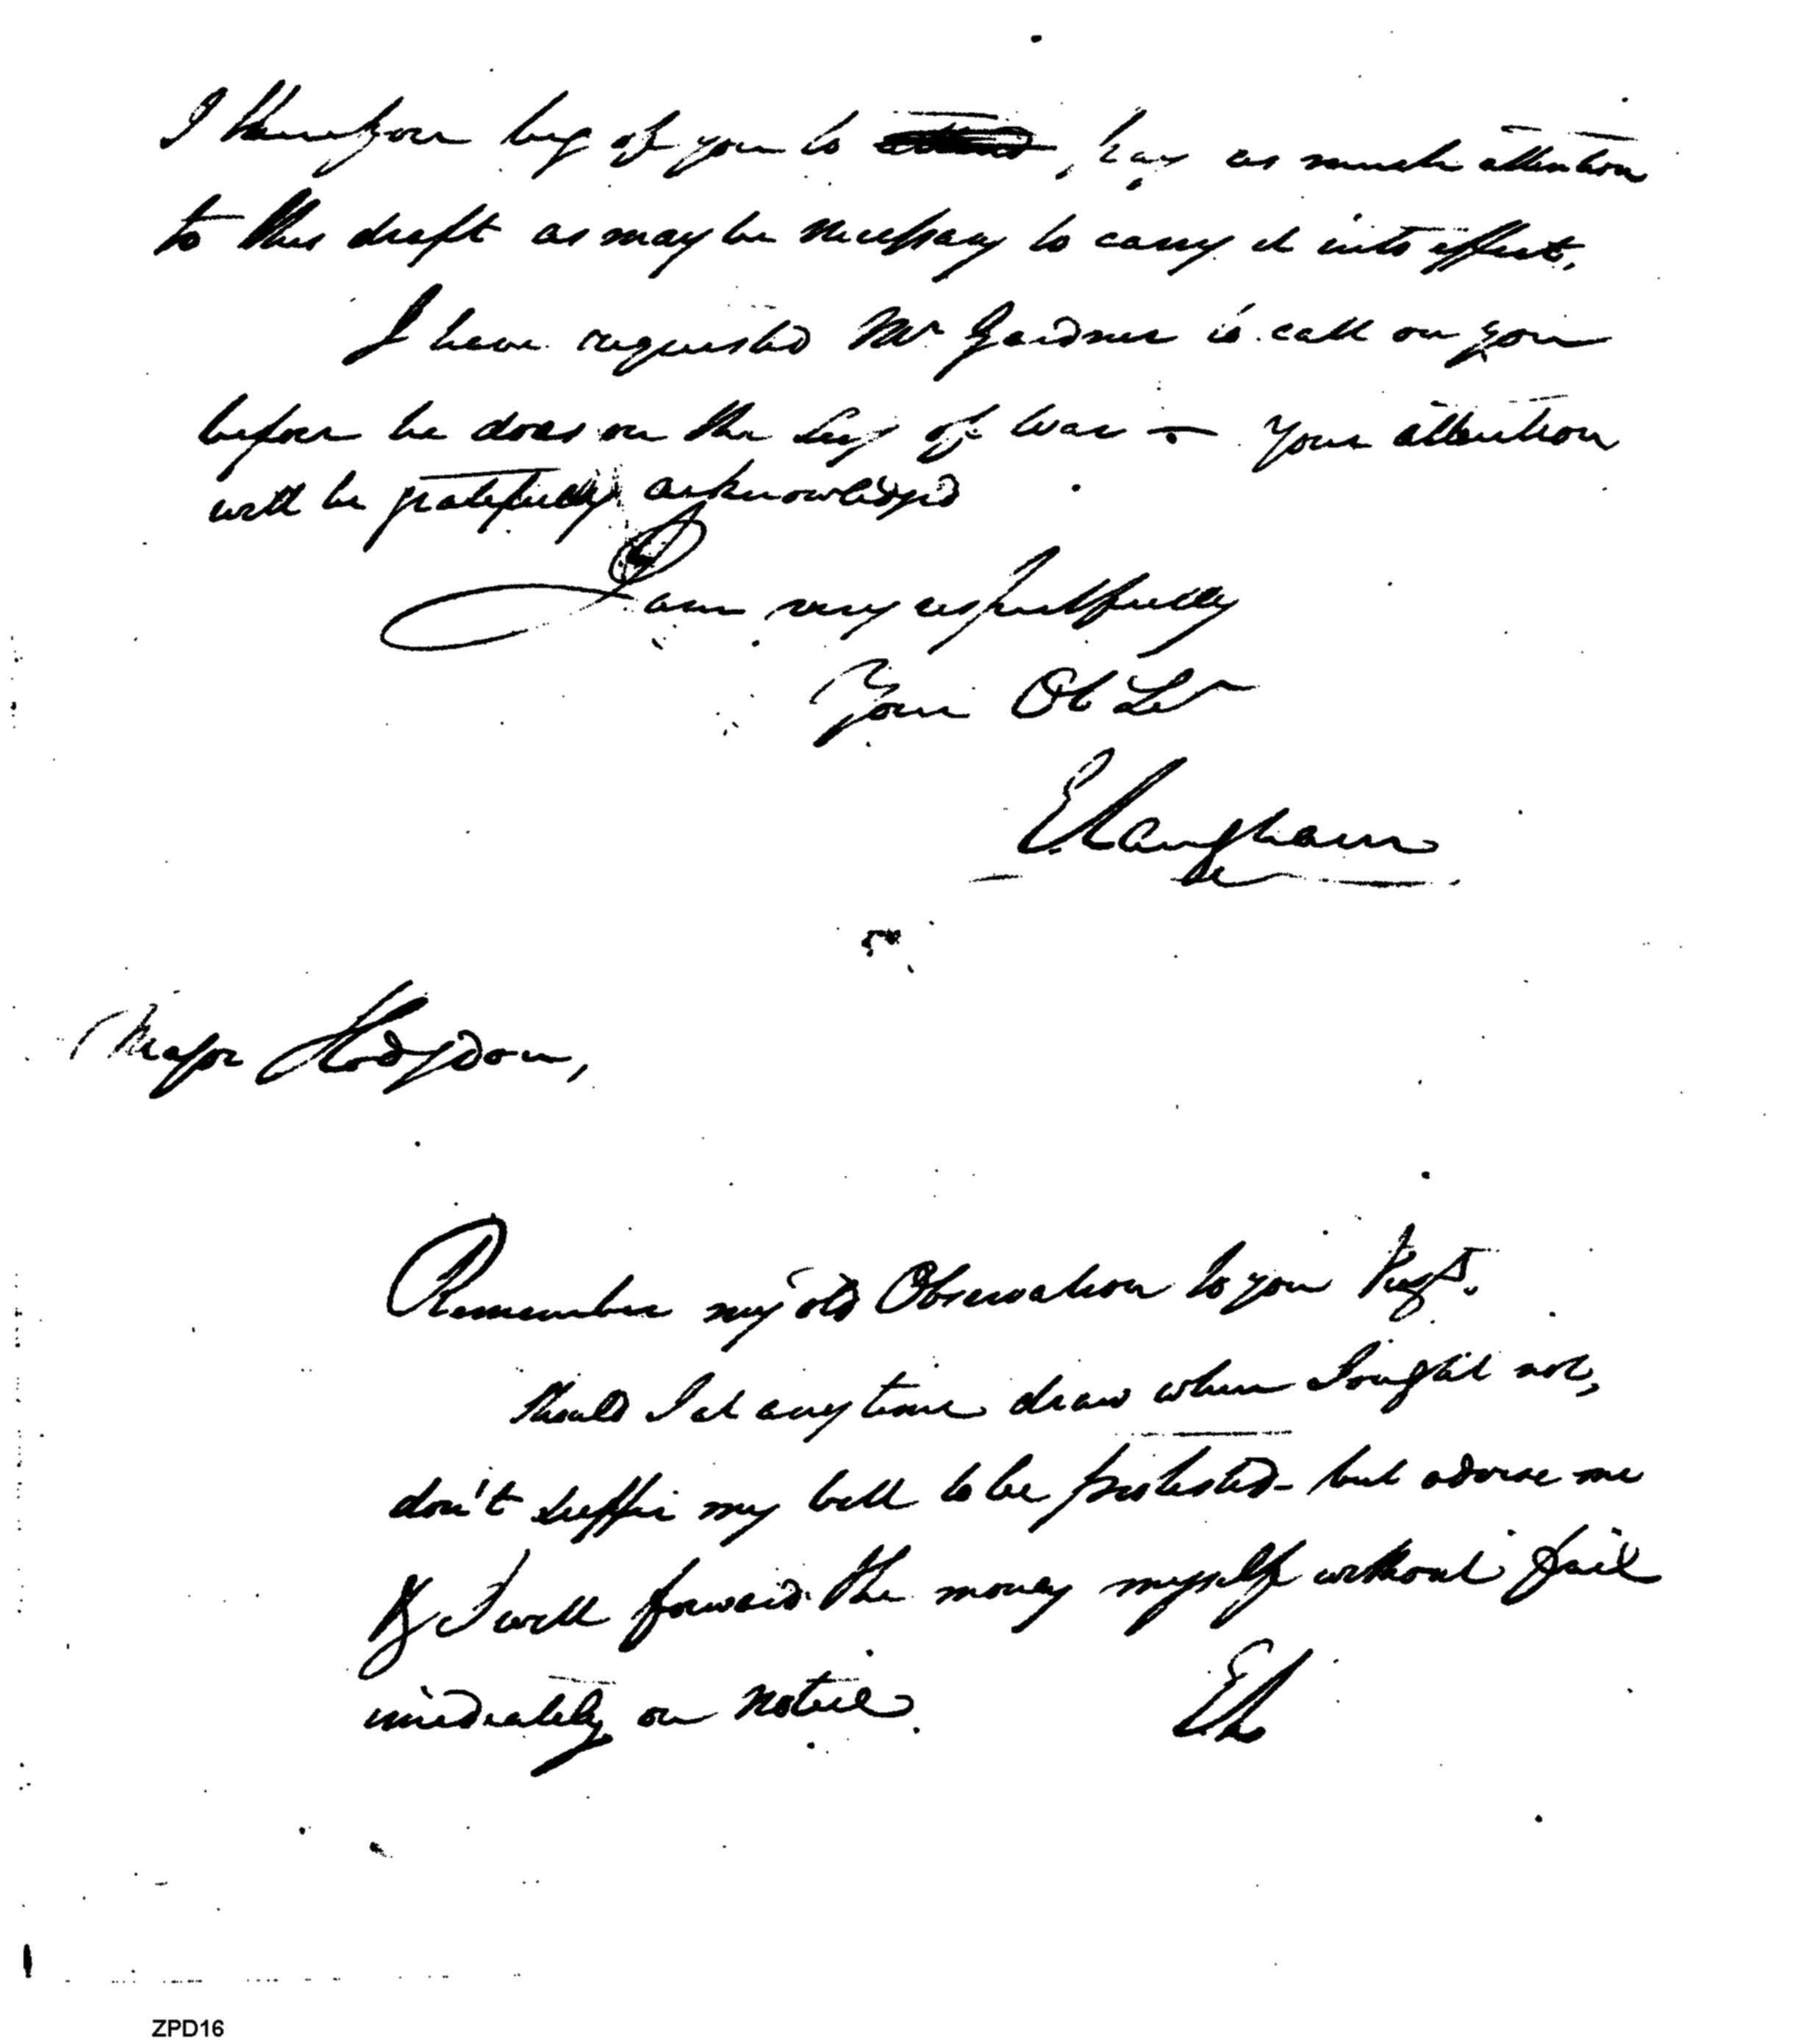 I therefore beg of you to pay as much attention
to this draft as may be necessary to carry it into effect.
I have requested Mr Gardner to call on you
before he does on the Secy of War — Your attention
will be gratefully acknowledged
I am very respectfully
Your Ob Sr
E Langham
Major Hodgdon,
Remember my old Observation to you
should I at any time draw when I ought not,
don't suffer my bill to be protested but advise me
& I will forward the money myself without fail
imediately on notice. EL
ZPD16